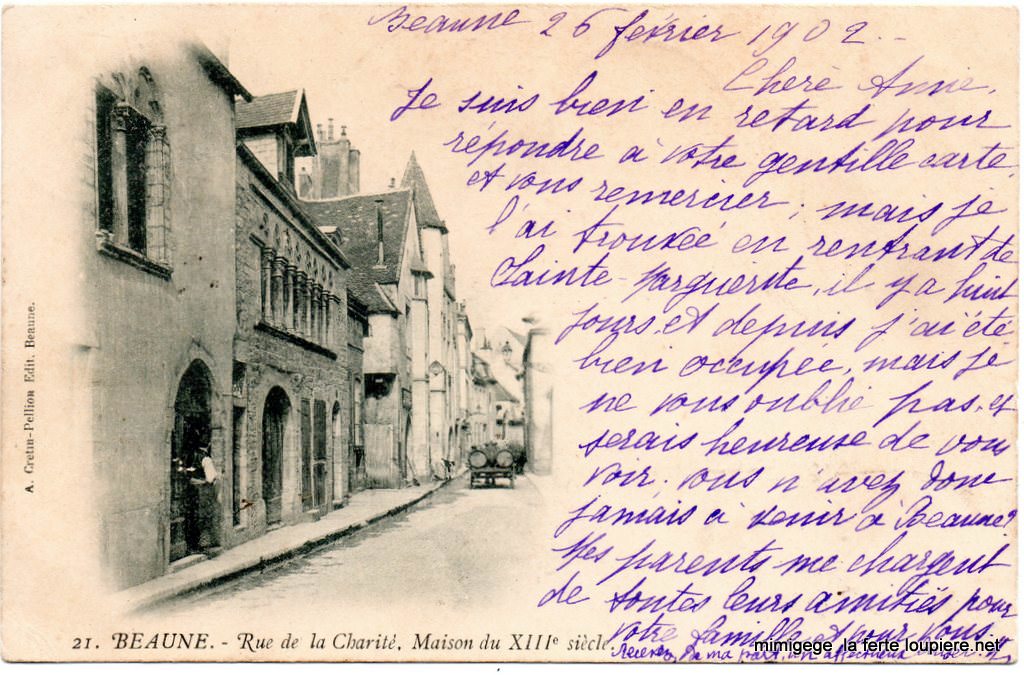 Beaune 26 février 1902.-
Chère Anne,
Je suis bien en retard pour
répondre à votre gentille carte,
et vous remercier; mais je
l'ai trouvée en rentrant de
Sainte-Marguerite, il y a huit
jours, et depuis j'ai été
bien occupée, mais je
ne vous oublie pas, et
serais heureuse de vous
voir. vous n'avez donc
jamais à venir à Beaune?
Mes parents me chargent
de toutes leurs amitiés pour
votre famille et pour vous.
Recevez, de ma part, un affectueux baiser.
A. Cretin-Pellion Edit. Beaune.
21. BEAUNE. - Rue de la Charité, Maison du XIIIe siècle.
mimigege la ferte loupiere.net